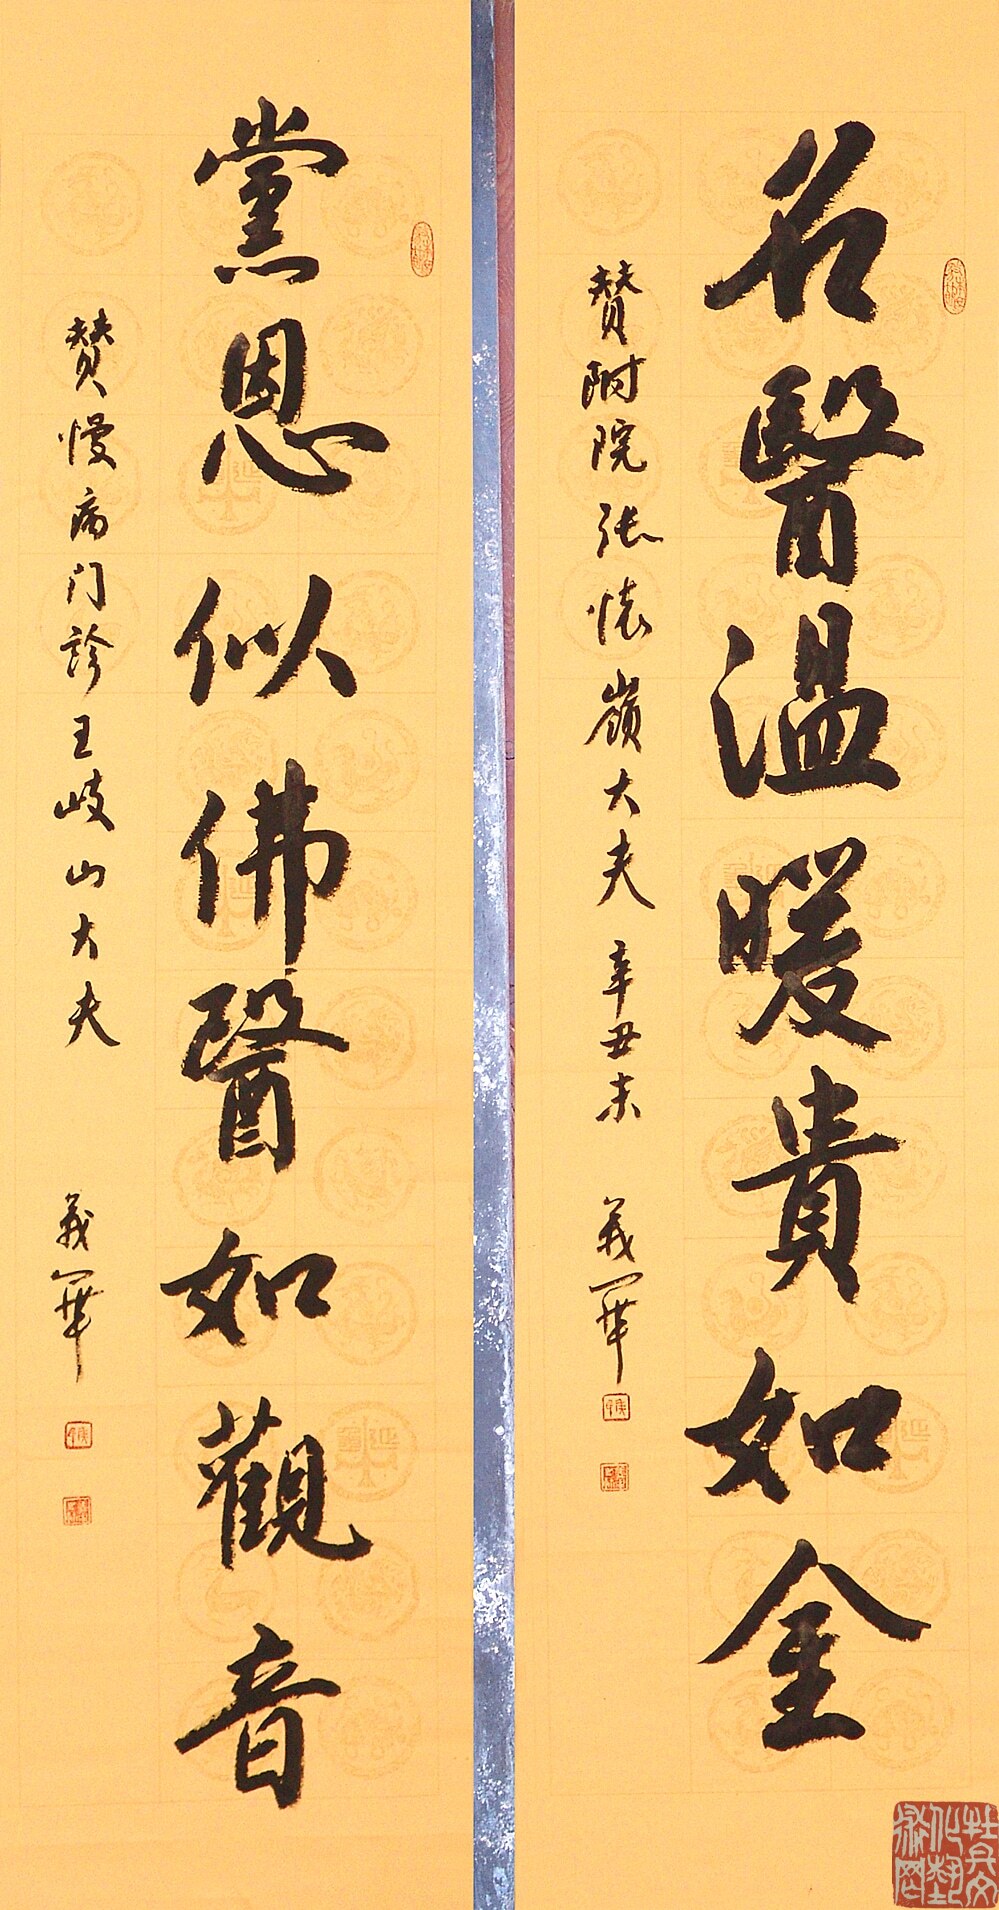 名醫溫暖貴如金
贊附院張懐嶺大夫 辛丑末 義華
黨恩似佛醫如觀音
贊慢病门診王岐山大夫 義華